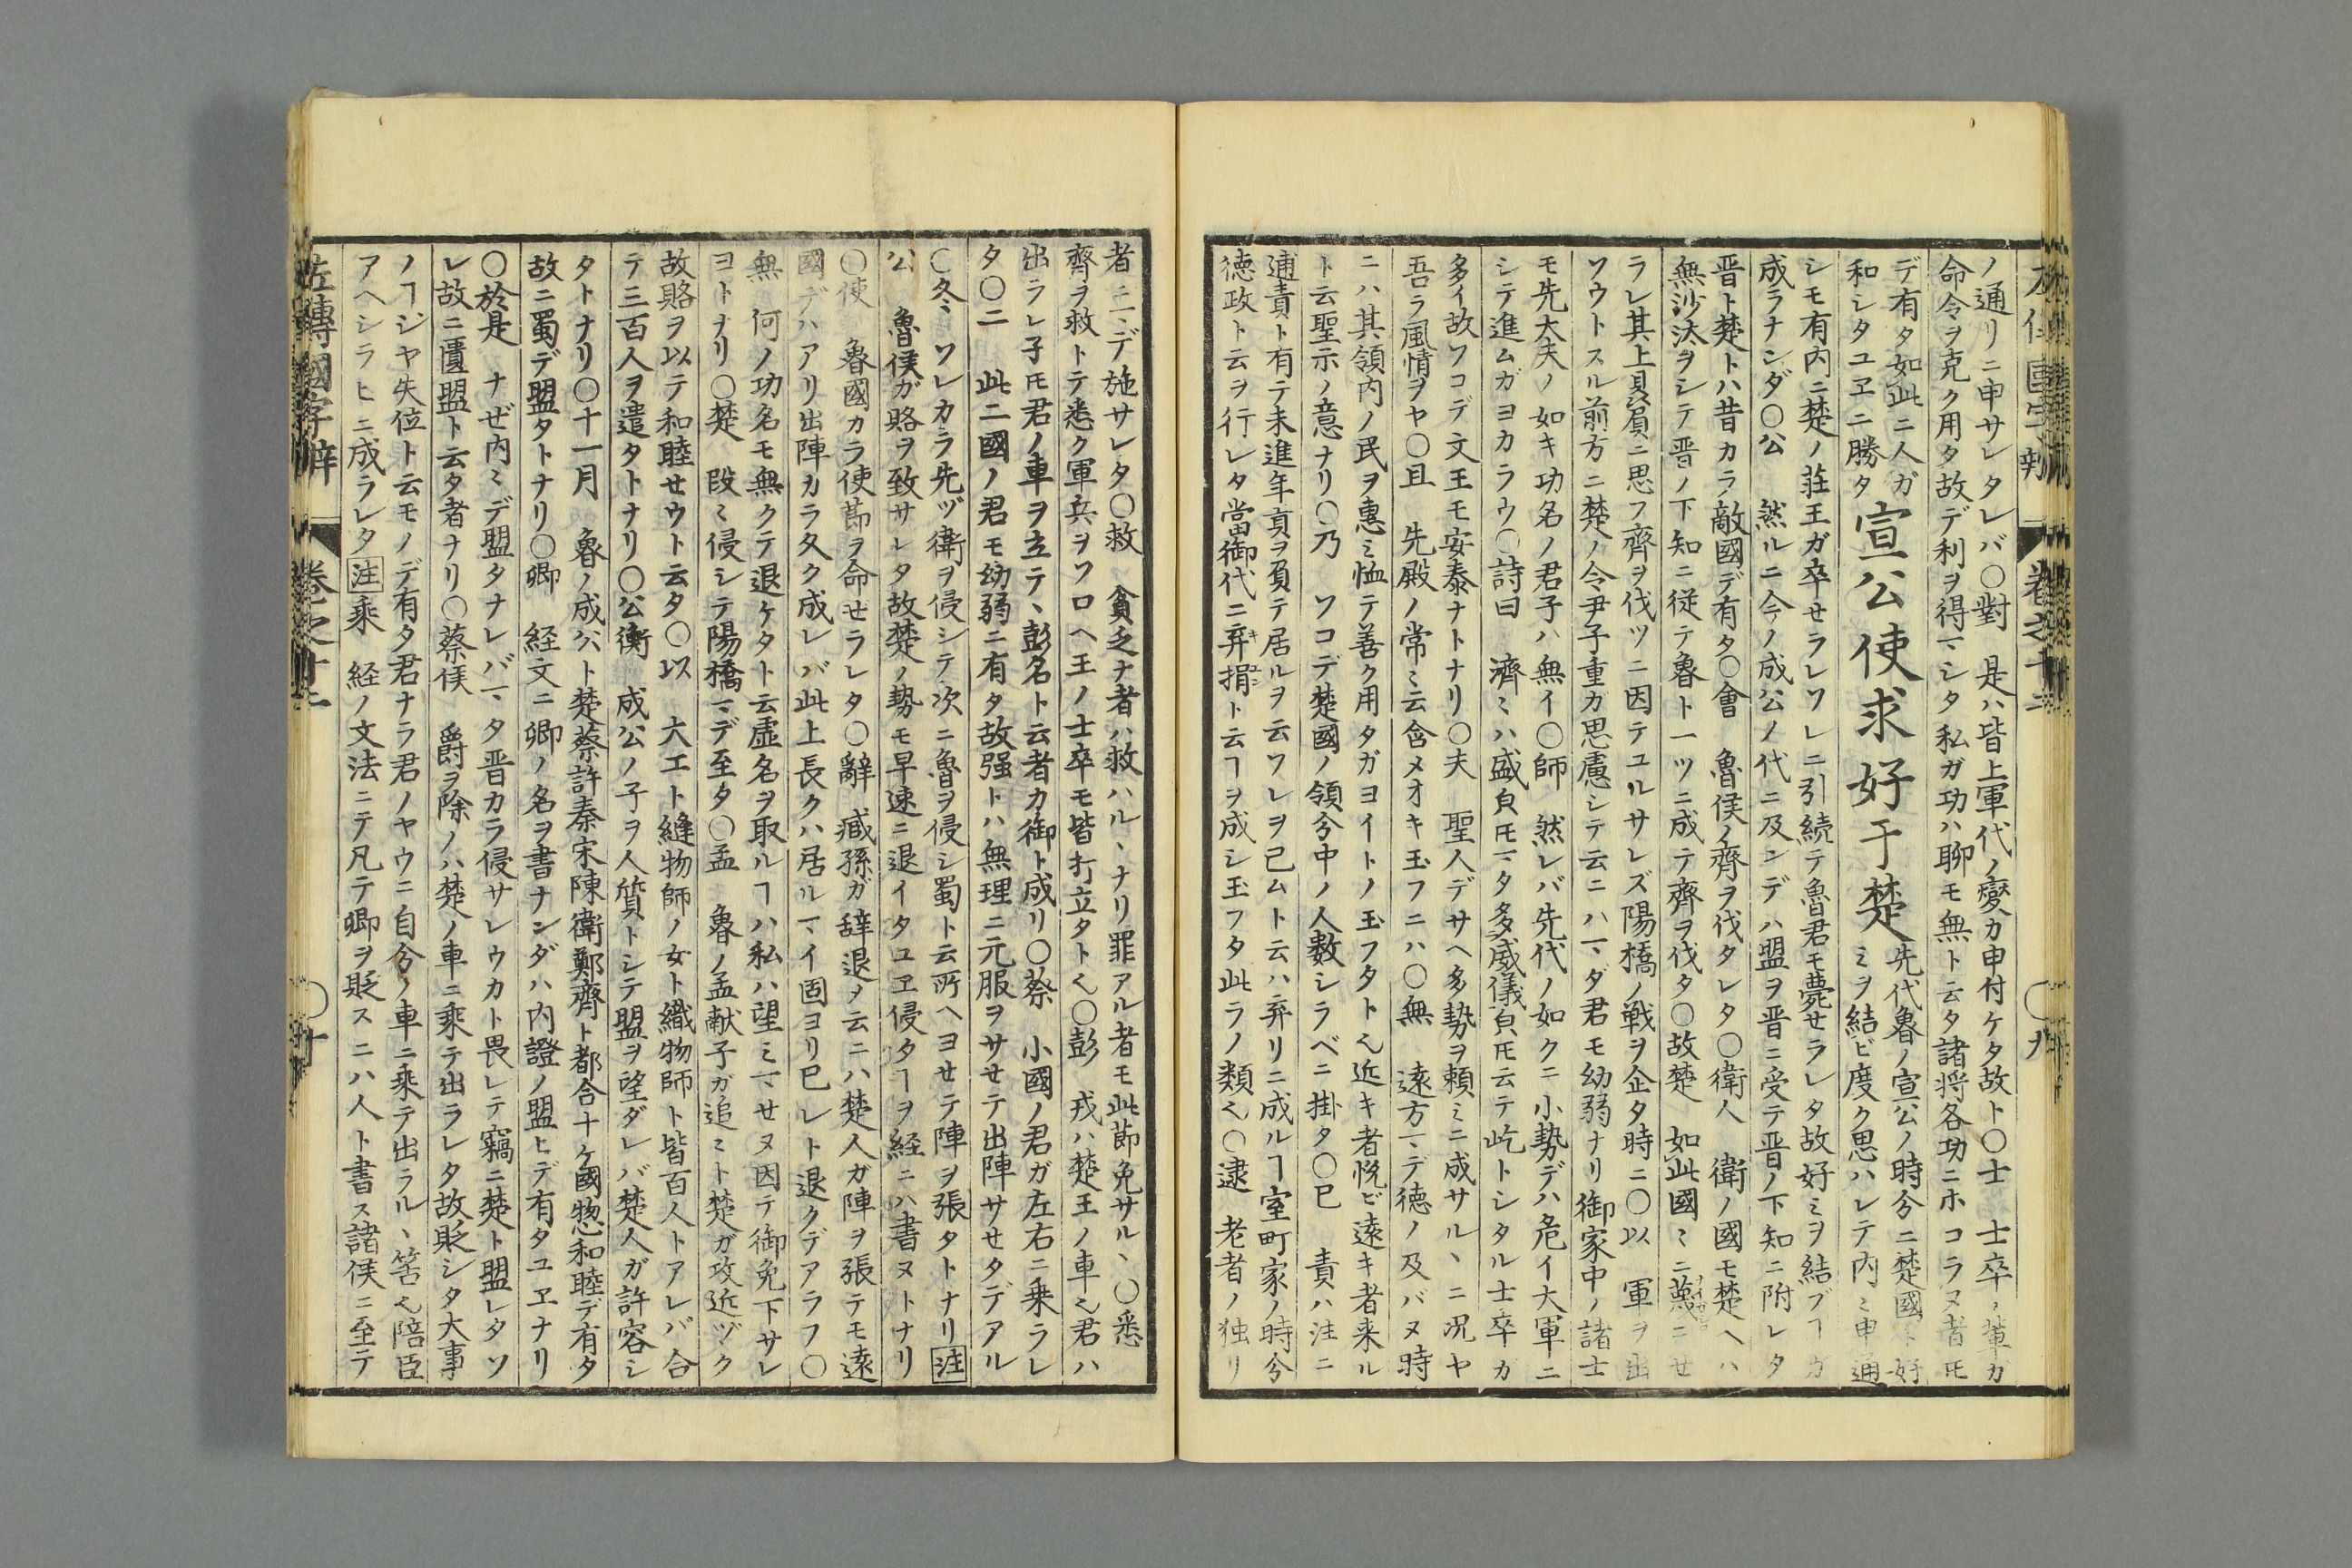 ノ通リニ申サレタレバ〇對 是ハ皆上軍代ノ變カ申付ケタ故ト〇士 士卒ノ輩カ
命令ヲ克ク用タ故デ利ヲ得マシタ私ガ功ハ聊モ無ト云タ諸将各功ニホコラヌ者𪜈
デ有タ如此ニ人ガ
和シタユヱニ勝タ
宣公使求好于楚
先代魯ノ宣公ノ時分ニ楚國ト好
ミヲ結ビ度ク思ハレテ内ミ申通
シモ有内ニ楚ノ荘王ガ卒セラレソレニ引続テ魯君モ薨セラレタ故好ミヲ結ブヿガ
成ラナンダ〇公 然ルニ今ノ成公ノ代ニ及ンデハ盟ヲ晋ニ受テ晋ノ下知ニ附レタ
晋ト楚トハ昔カラ敵國デ有タ〇會 魯侯ノ齊ヲ伐タレタ〇衛人 衛ノ國モ楚ヘハ
無沙汰ヲシテ晋ノ下知ニ従テ魯ト一ツニ成テ齊ヲ伐タ〇故楚 如此國ミニ蔑ニセ
ラレ其上贔屓ニ思フ齊ヲ伐ツニ因テユルサレズ陽橋ノ戦ヲ企タ時ニ〇以 軍ヲ出
ソウトスル前方ニ楚ノ令尹子重カ思慮シテ云ニハマダ君モ幼弱ナリ御家中ノ諸士
モ先大夫ノ如キ功名ノ君子ハ無イ〇師 然レバ先代ノ如クニ小勢デハ危イ大軍ニ
シテ進ムガヨカラウ〇詩曰 濟ミハ盛皃𪜈マタ多威儀皃𪜈云テ屹トシタル士卒カ
多イ故ソコデ文王モ安泰ナトナリ〇夫 聖人デサヘ多勢ヲ頼ミニ成サル、ニ况ヤ
吾ラ風情ヲヤ〇且 先殿ノ常ミ云含メオキ玉フニハ〇無 遠方マデ德ノ及バヌ時
ニハ其領内ノ民ヲ惠ミ恤テ善ク用タガヨイトノ玉フタト也近キ者悦ビ遠キ者来ル
ト云聖示ノ意ナリ〇乃 ソコデ楚國ノ領分中ノ人数シラベニ掛タ〇已 責ハ注ニ
逋責ト有テ未進年貢ヲ負テ居ルヲ云ソレヲ已ムト云ハ弃リニ成ルヿ室町家ノ時分
徳政ト云ヲ行レタ當御代ニ弃捐ト云ヿヲ成シ玉フタ此ラノ類也〇逮 老者ノ独リ
者ニマデ施サレタ〇救 貧乏ナ者ハ救ハル、ナリ罪アル者モ此節免サル、〇悉
齊ヲ救トテ悉ク軍兵ヲソロヘ王ノ士卒モ皆打立タト也〇彭 戎ハ楚王ノ車也君ハ
出ラレ子𪜈君ノ車ヲ立テ、彭名ト云者カ御ト成リ〇蔡 小國ノ君ガ左右ニ乗ラレ
タ〇二 此二國ノ君モ幼弱ニ有タ故强トハ無理ニ元服ヲサセテ出陣サセタデアル
〇冬、ソレカラ先ヅ衛ヲ侵シテ次ニ魯ヲ侵シ蜀ト云所ヘヨセテ陣ヲ張タトナリ注
公 魯侯ガ賂ヲ致サレタ故楚ノ勢モ早速ニ退イタユヱ侵タヿヲ経ニハ書ヌトナリ
〇使 魯國カラ使節ヲ命セラレタ〇辭 臧孫ガ辞退ヲ云ニハ楚人ガ陣ヲ張テモ遠
國デハアリ出陣カラ久ク成レバ此上長クハ居ルマイ固ヨリ巳レト退クデアラフ〇
無 何ノ功名モ無クテ退ケタト云虚名ヲ取ルヿハ私ハ望ミマセヌ因テ御免下サレ
ヨトナリ〇楚 段ミ侵シテ陽橋マデ至タ〇孟 魯ノ孟献子ガ追ミト楚ガ攻近ヅク
故賂ヲ以テ和睦セウト云タ〇以 大工ト縫物師ノ女ト織物師ト皆百人トアレバ合
テ三百人ヲ遣タトナリ〇公衡 成公ノ子ヲ人質トシテ盟ヲ望ダレバ楚人ガ許容シ
タトナリ〇十一月 魯ノ成公ト楚蔡許秦宋陳衛鄭齊ト都合十ケ國惣和睦デ有タ
故ニ蜀デ盟タトナリ〇卿 経文ニ卿ノ名ヲ書ナンダハ内證ノ盟ヒデ有タユヱナリ
〇於是 ナぜ内ミデ盟タナレバマタ晋カラ侵サレウカト畏レテ竊ニ楚ト盟レタソ
レ故ニ匱盟ト云タ者ナリ〇蔡侯 爵ヲ除ノハ楚ノ車ニ乘テ出ラレタ故貶シタ大事
ノヿジヤ失位ト云モノデ有タ君ナラ君ノヤウニ自分ノ車ニ乘テ出ラル、筈也陪臣
アヘシラヒニ成ラレタ注乘 経ノ文法ニテ凡テ卿ヲ貶スニハ人ト書ス諸侯ニ至テ
左傳國字辯 卷之十二 〇十